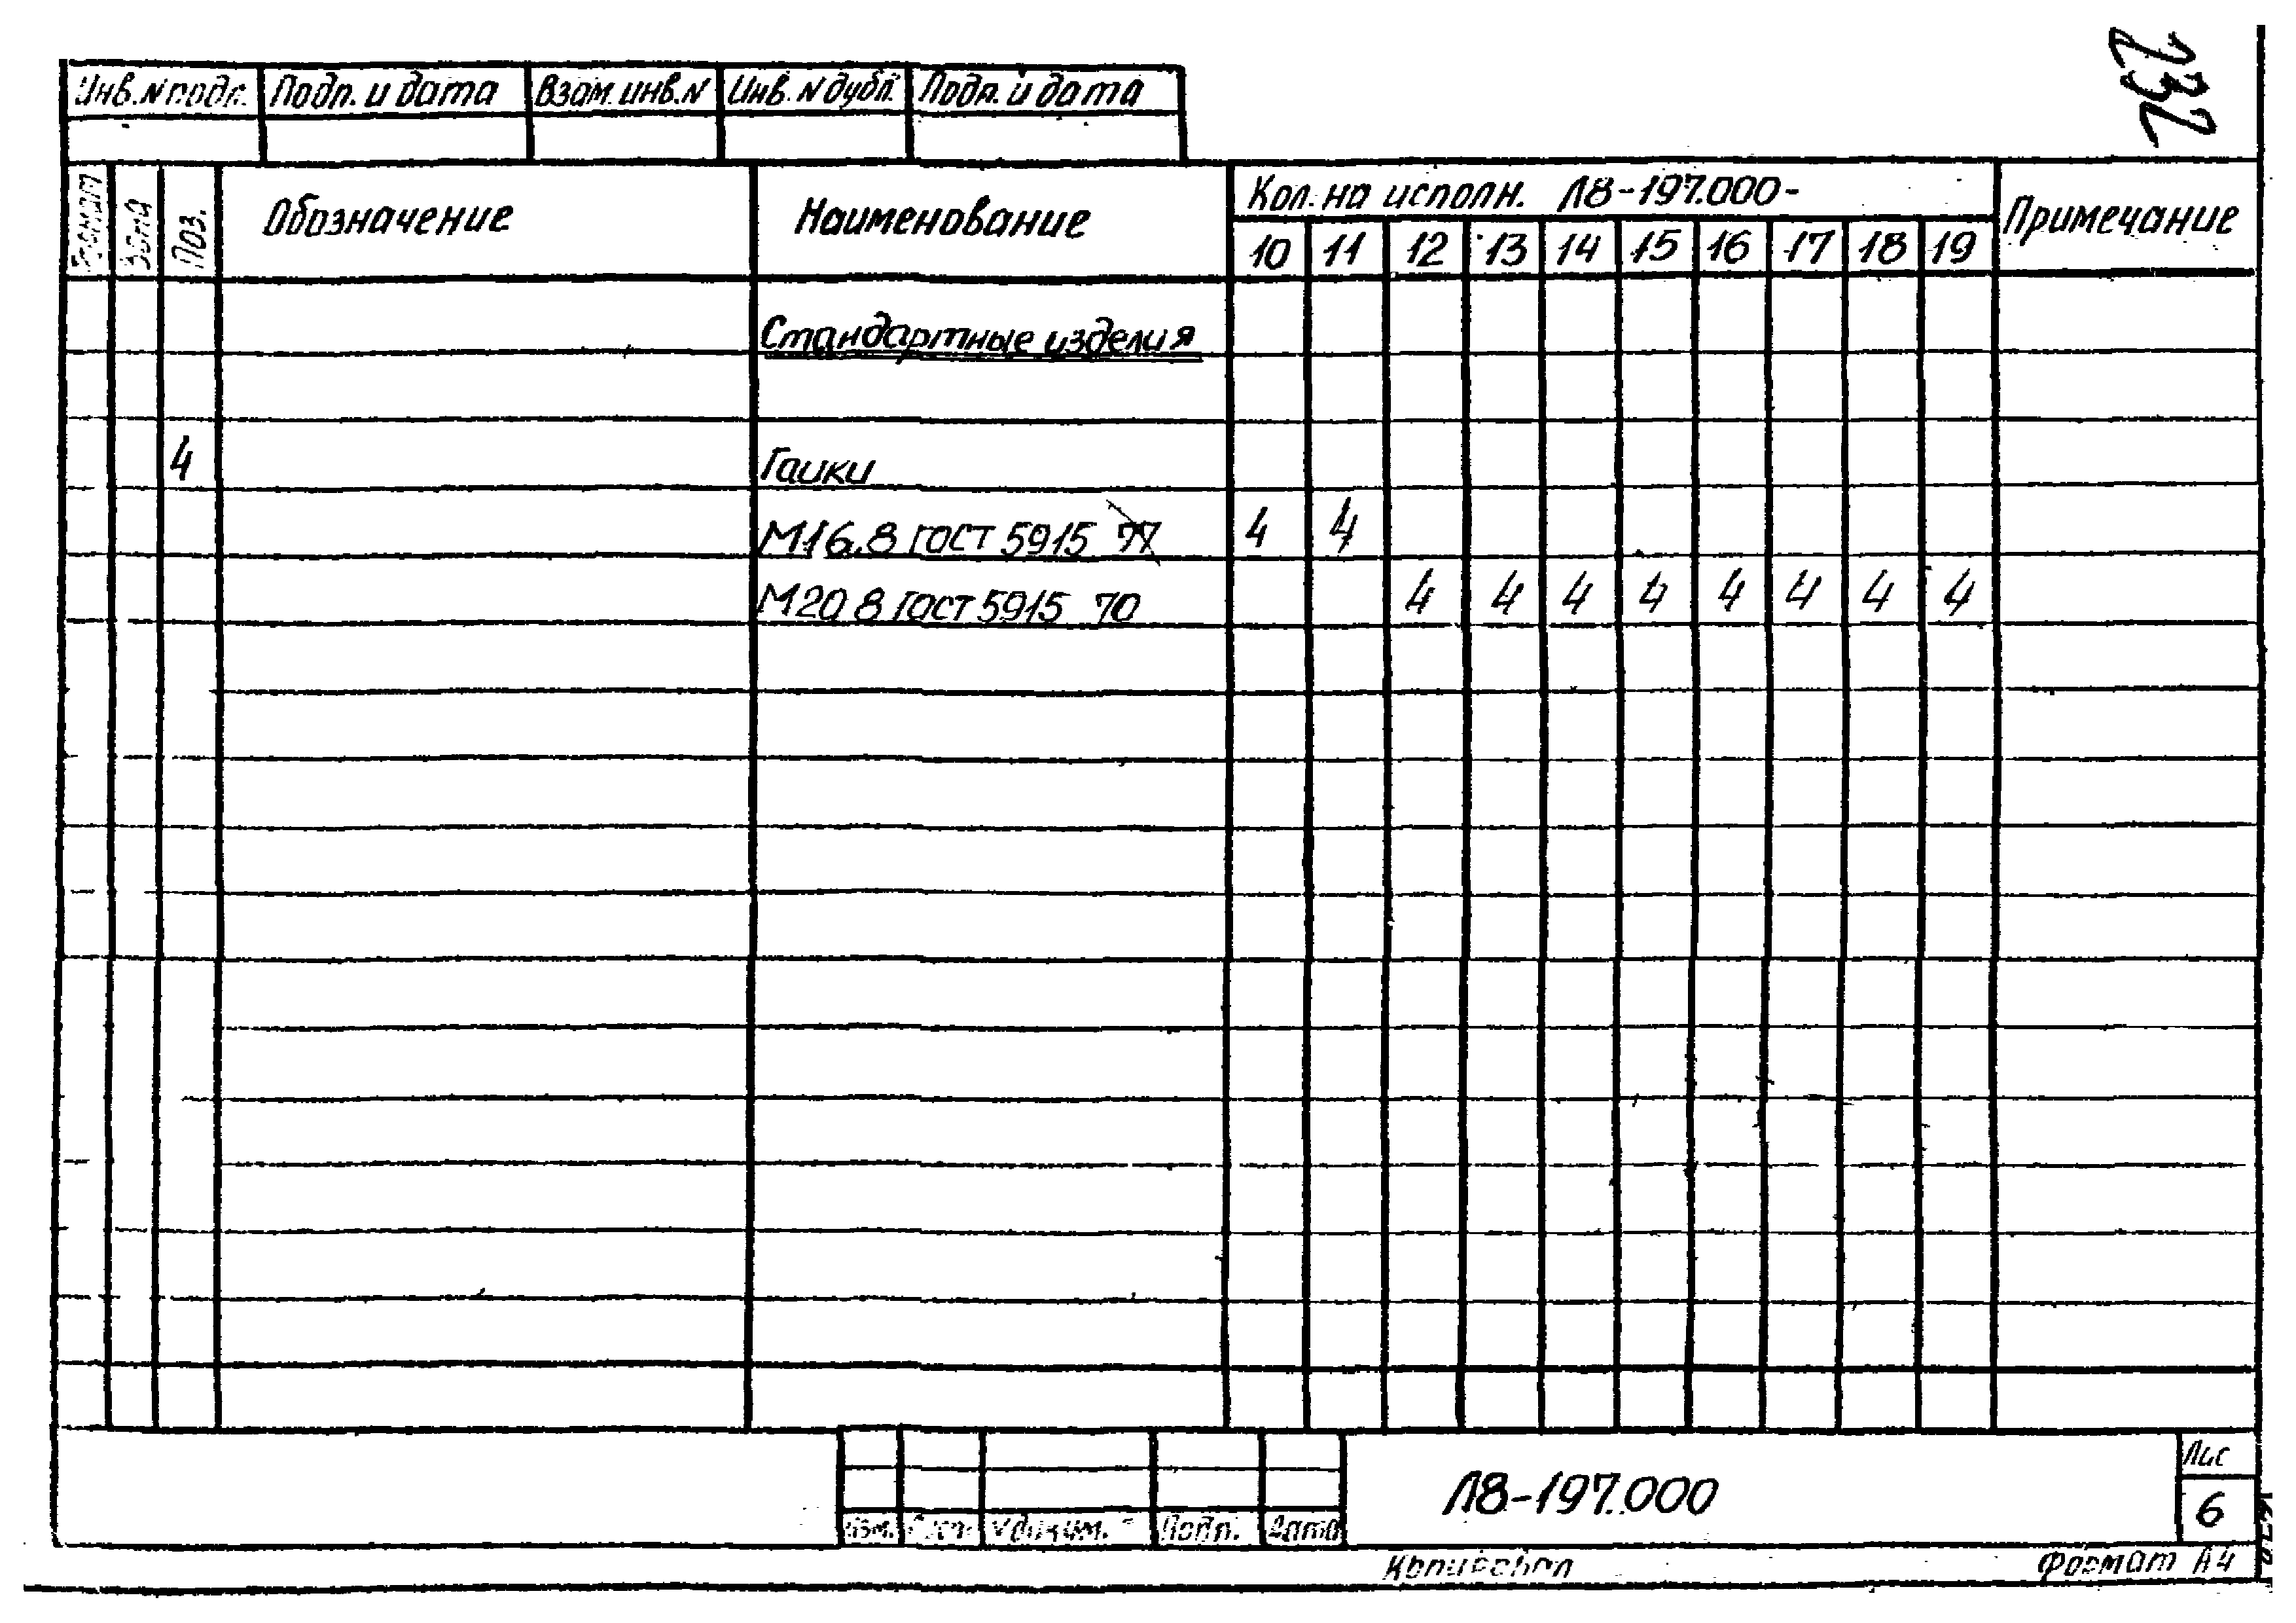 232
Инв.N подл. Подп. и дата Взам. инв.N Инв. N дубл. Подп. и дата
Формат Зона Поз. Обозначение Наименование Кол. на исполн. Л8-197.000- Примечание
10 11 12 13 14 15 16 17 18 19
Стандартные изделия
4 Гаики
М16.8 ГОСТ 5915 77 4 4
М20 8 ГОСТ 5915 70 4 4 4 4 4 4 4 4
Л8-197.000
Лис
6
Изм. Подп. Дата
Копировал Формат А4